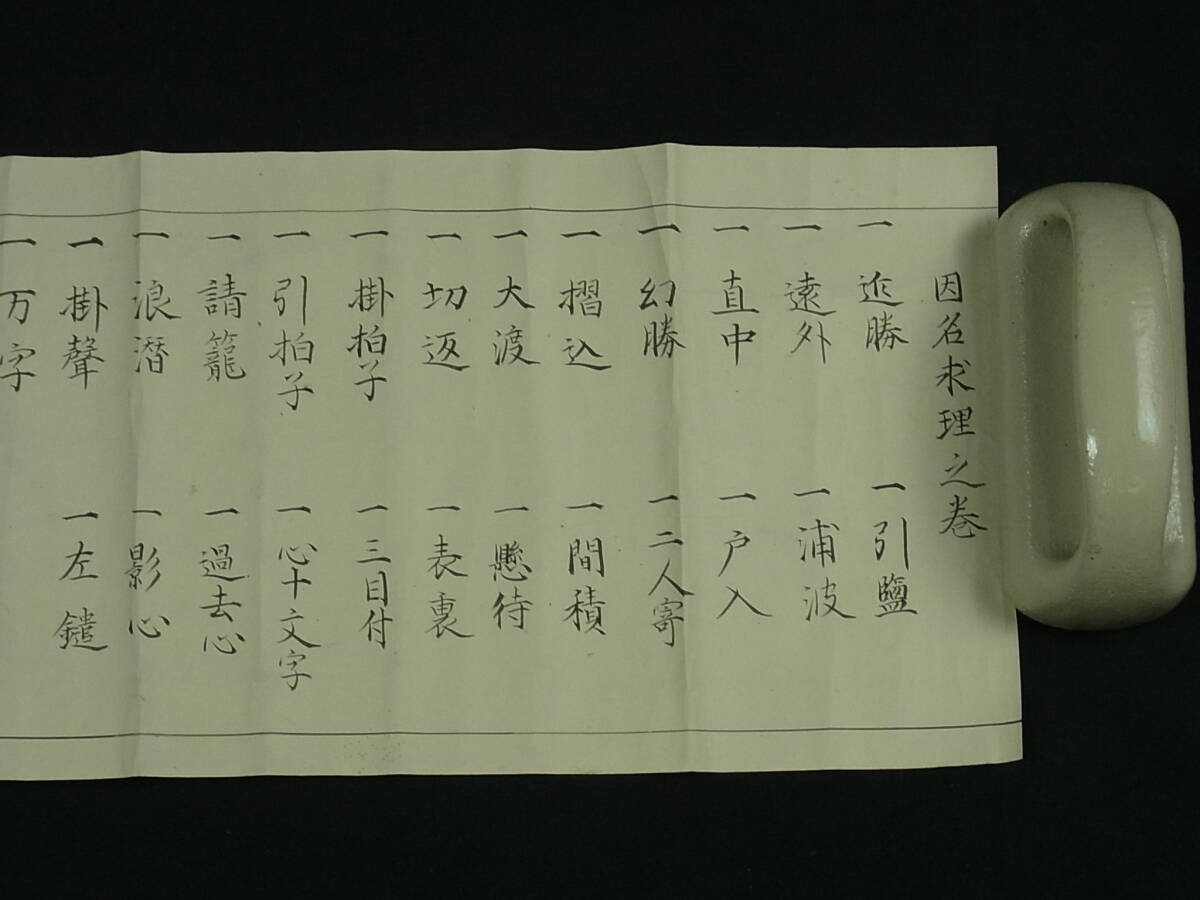 因名求理之巻
一 近勝 一 引鹽
一 遠外 一 浦波
一 直中 一 戸入
一 幻勝 一 二人寄
一 摺込 一 間積
一 大渡 一 懸待
一 切返 一 表裏
一 掛拍子 一 三目付
一 引拍子 一 心十文字
一 請籠 一 過去心
一 浪潜 一 影心
一 掛聲 一 左鑓
一 万字